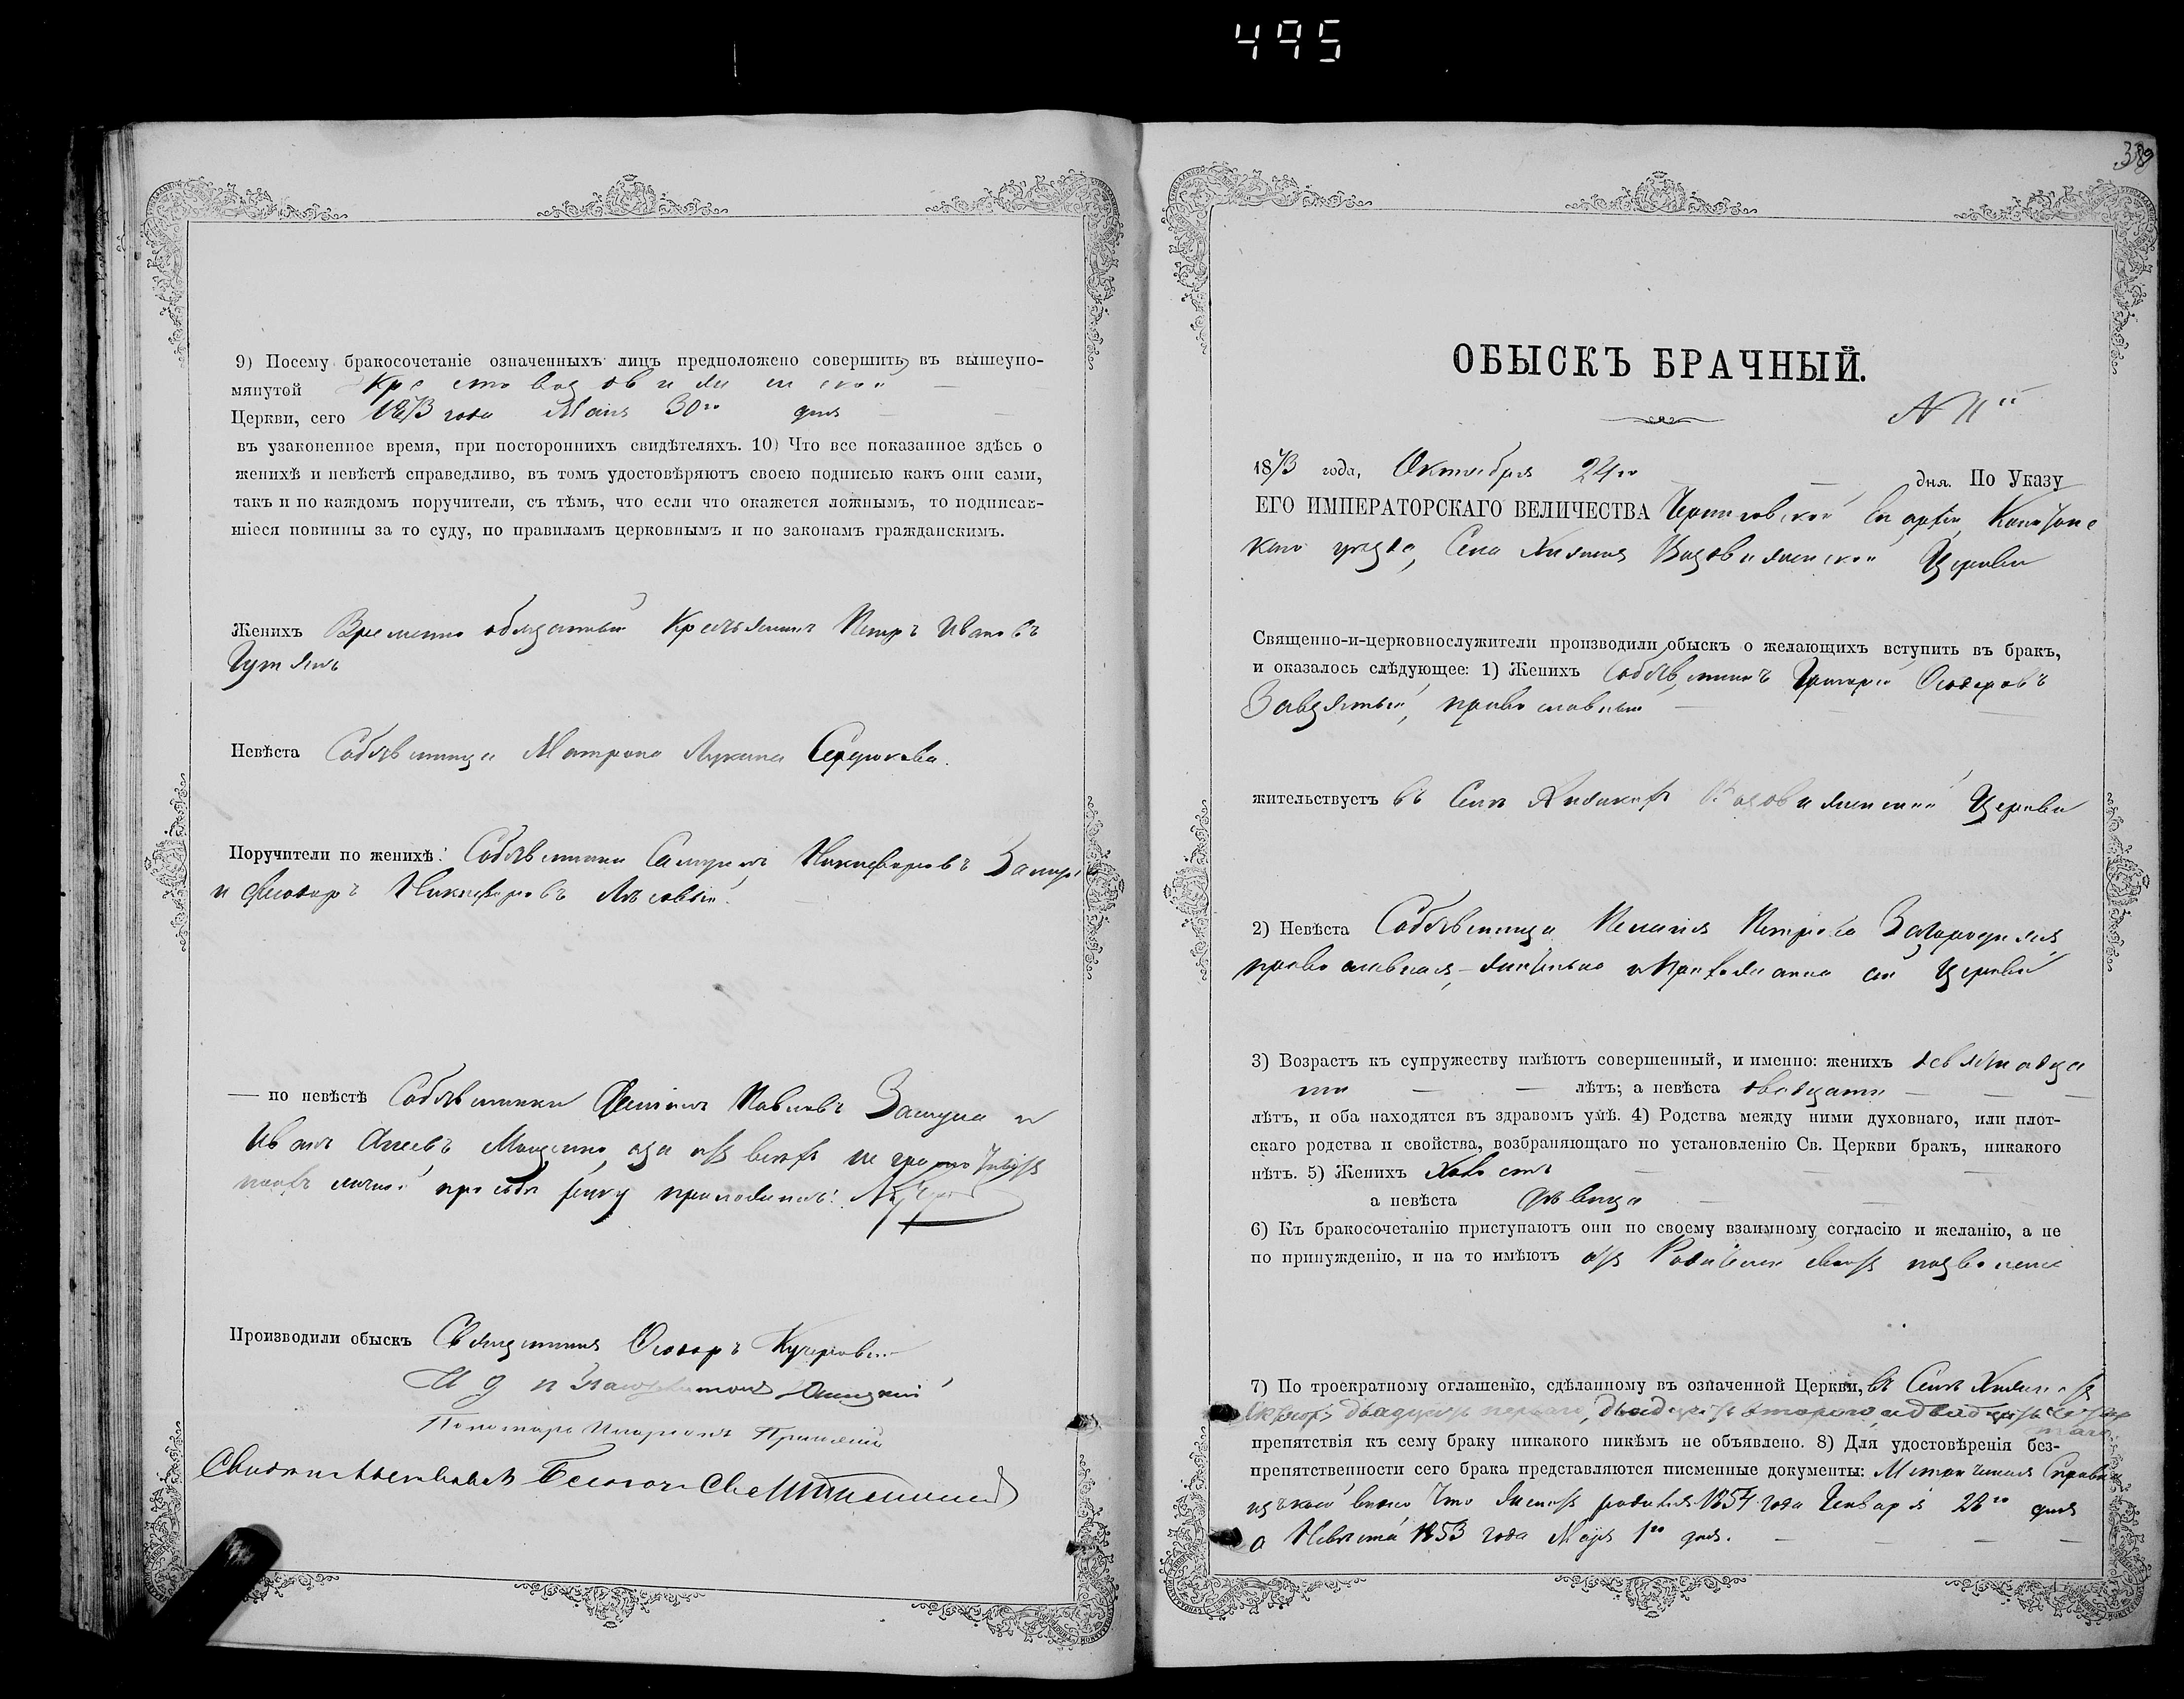 495
389
9) Посему бракосочетаніе означенныхъ лицъ предположено совершить, въ вышеупо-
мянутой Крестовоздвиженской
Церкви, сего 1873 года Маія 30го дня
въ узаконенное время, при постороннихъ свидѣтеляхъ. 10) Что все показанное здѣсь о
женихѣ и невѣстѣ справедливо, въ томъ удостовѣряютъ своею подписью какъ они сами,
такъ и по каждомъ поручители, съ тѣмъ, что если что окажется ложнымъ, то подписав-
шіеся повинны за то суду, по правиламъ церковнымъ и по законамъ гражданскимъ.
Женихъ Временно обязанный Крестьянинъ Петръ Ивановъ
Невѣста Собственница Матрона Лукина Сердюкова.
Поручители по женихѣ: Собственники Самуилъ Никифоровъ
и Феодоръ Никифоровъ Лѣсовый.
— по невѣстѣ Собственники Павловъ и
Иванъ а за ихъ всѣхъ не грамотныхъ
по ихъ личной просьбѣ руку приложилъ:
Производили обыскъ Священникъ Феодоръ
И д псаломщика
Пономарь
ОБЫСКЪ БРАЧНЫЙ.
N 11й
1873 года, Октября 24го дня. По Указу
ЕГО ИМПЕРАТОРСКАГО ВЕЛИЧЕСТВА Черниговской Епархіи, Конотопс
каго уѣзда, Села Хижокъ Воздвиженской Церкви
Священно-и-церковнослужители производили обыскъ о желающихъ вступить въ бракъ,
и оказалось слѣдующее: 1) Женихъ Собственникъ Григорій Феодоровъ
православный
жительствуетъ въ Селѣ Хижкахъ Воздвиженской Церкви
2) Невѣста Собственница Пелагія Петрова Загородняя
православная, жительство Прихожанка сей Церкви
3) Возрастъ къ супружеству имѣютъ совершенный, и именно: женихъ девятнадца
ти лѣтъ; а невѣста двадцати
лѣтъ, и оба находятся въ здравомъ умѣ. 4) Родства между ними духовнаго, или плот-
скаго родства и свойства, возбраняющаго по установленію Св. Церкви бракъ, никакого
нѣтъ. 5) Женихъ Холостъ
а невѣста Дѣвица
6) Къ бракосочетанію приступаютъ они по своему взаимному согласію и желанію, а не
по принужденію, и на то имѣютъ отъ Родителей своихъ позволеніе
7) По троекратному оглашенію, сдѣланному въ означенной Церкви, въ Селѣ Хижкахъ
двадцать перваго, двадцать втораго, и двадцать
препятствія къ сему браку никакого никѣмъ не объявлено. 8) Для удостовѣренія без-
препятственности сего брака представляются писменные документы: Метрическая Справка
изъ коей видно что женихъ родился 1854 года Января 28го дня
а Невѣста 1853 года Маія 1го дня.